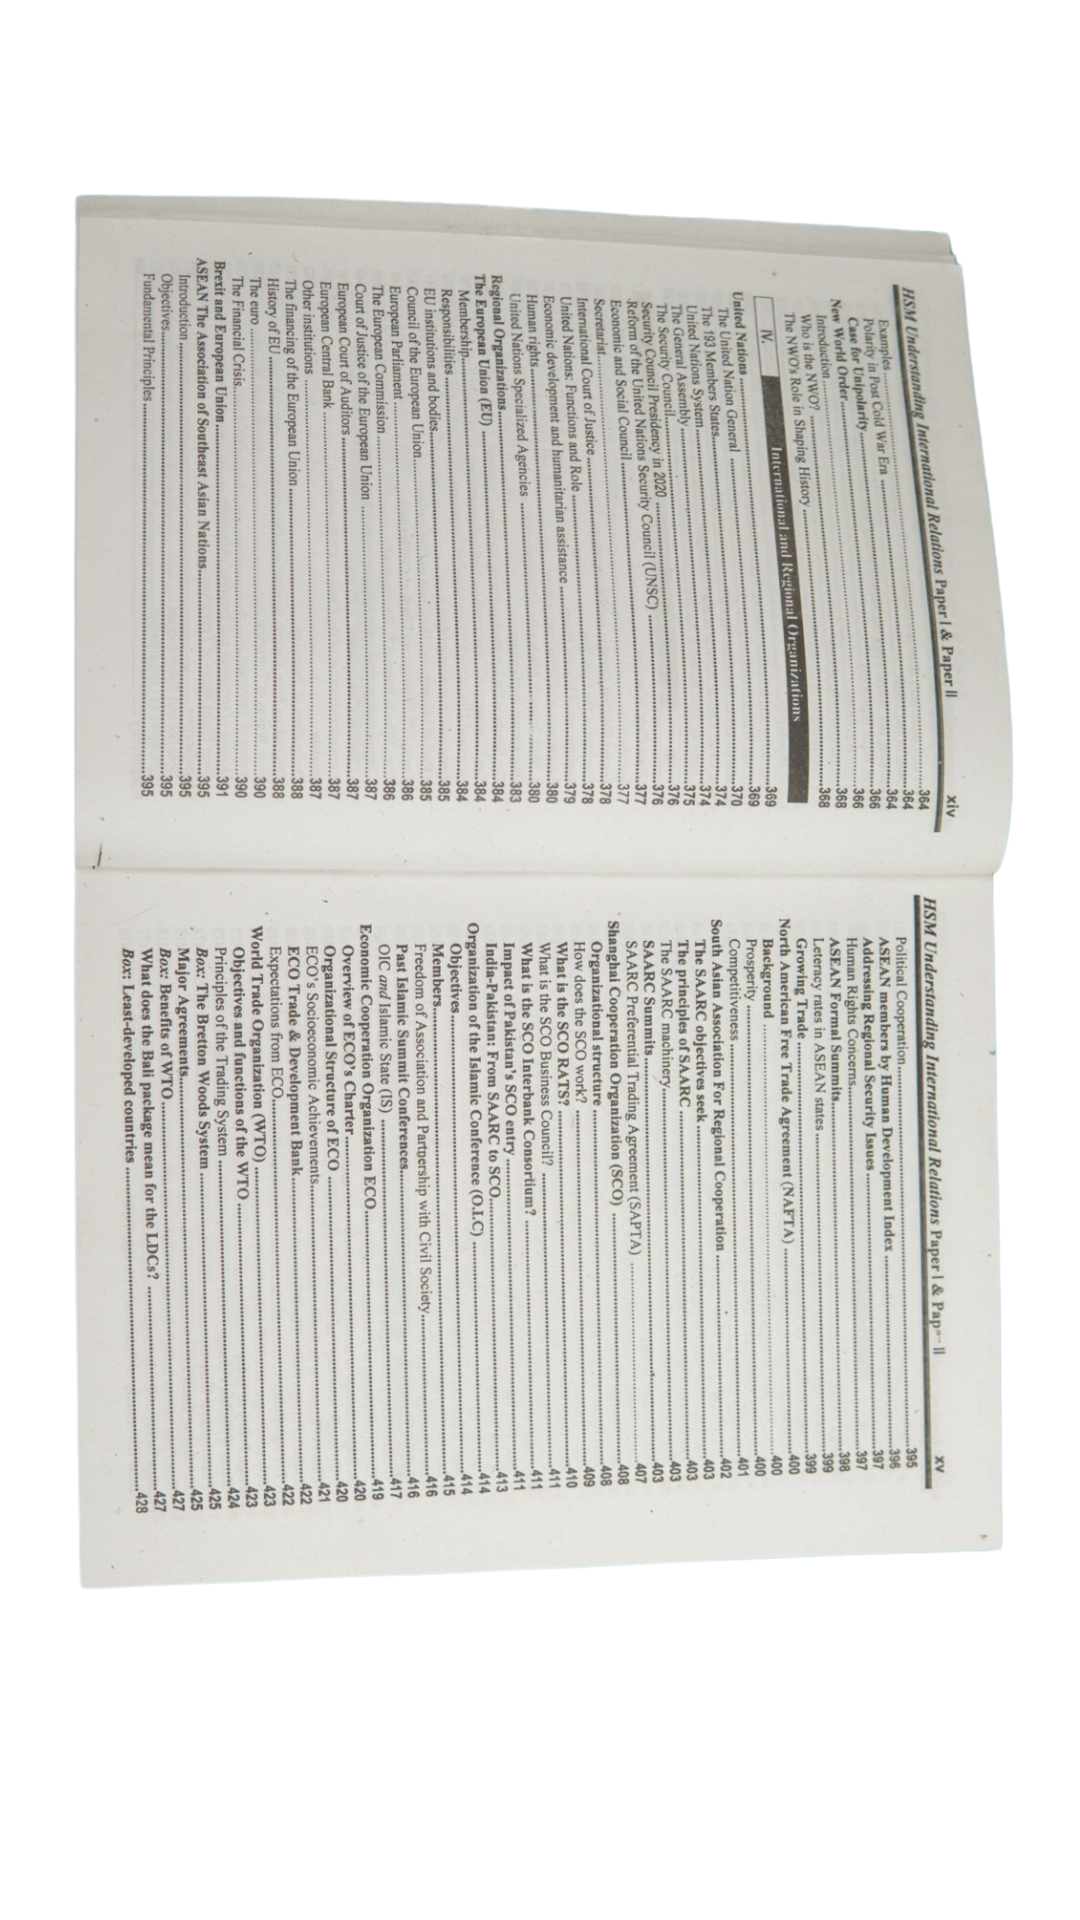 HSM Understanding International Relations Paper I & Paper II xiv
Examples 364
Polarity in Post Cold War Era 364
Case for Unipolarity 364
New World Order 366
Introduction 366
Who is the NWO? 368
The NWO's Role in Shaping History 368
IV. International and Regional Organizations
United Nations 369
The United Nation General 369
The 193 Members States 370
United Nations System 374
The General Assembly 374
The Security Council 375
Security Council Presidency in 2020 376
Reform of the United Nations Security Council (UNSC) 376
Economic and Social Council 377
Secretariat 377
International Court of Justice 378
United Nations: Functions and Role 378
Economic development and humanitarian assistance 379
Human rights 380
United Nations Specialized Agencies 380
Regional Organizations 383
The European Union (EU) 384
Membership 384
Responsibilities 384
EU institutions and bodies 385
Council of the European Union 385
European Parliament 386
The European Commission 386
Court of Justice of the European Union 387
European Court of Auditors 387
European Central Bank 387
Other institutions 387
The financing of the European Union 388
History of EU 388
The euro 390
The Financial Crisis 390
Brexit and European Union 391
ASEAN The Association of Southeast Asian Nations 395
Introduction 395
Objectives 395
Fundamental Principles 395
HSM Understanding International Relations Paper I & Pap II xv
Political Cooperation 395
ASEAN members by Human Development Index 396
Addressing Regional Security Issues 397
Human Rights Concerns 397
ASEAN Formal Summits 398
Leteracy rates in ASEAN states 399
Growing Trade 399
North American Free Trade Agreement (NAFTA) 400
Background 400
Prosperity 400
Competitiveness 401
South Asian Association For Regional Cooperation 402
The SAARC objectives seek 403
The principles of SAARC 403
The SAARC machinery 403
SAARC Summits 403
SAARC Preferential Trading Agreement (SAPTA) 407
Shanghai Cooperation Organization (SCO) 408
Organizational structure 408
How does the SCO work? 409
What is the SCO RATS? 410
What is the SCO Business Council? 411
What is the SCO Interbank Consortium? 411
Impact of Pakistan's SCO entry 411
India-Pakistan: From SAARC to SCO 413
Organization of the Islamic Conference (O.I.C) 414
Objectives 414
Members 415
Freedom of Association and Partnership with Civil Society 416
Past Islamic Summit Conferences 416
OIC and Islamic State (IS) 417
Economic Cooperation Organization ECO 419
Overview of ECO's Charter 420
Organizational Structure of ECO 420
ECO's Socioeconomic Achievements 421
ECO Trade & Development Bank 422
Expectations from ECO 422
World Trade Organization (WTO) 423
Objectives and functions of the WTO 423
Principles of the Trading System 424
Box: The Bretton Woods System 425
Major Agreements 425
Box: Benefits of WTO 427
What does the Bali package mean for the LDCs? 427
Box: Least-developed countries 428